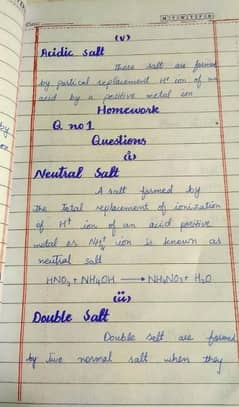 M T W T F S
Date:
(v)
Acidic salt
These salt are formed
by partical replacement H⁺ ion of an
acid by a positive metal ion
Homework
Q no 1
Questions
(i)
Neutral Salt
A salt formed by
the Total replacement of ionization
of H⁺ ion of an acid positive
metal or NH₄⁺ ion is known as
neutral salt
HNO₃ + NH₄OH ⟶ NH₄NO₃ + H₂O
(ii)
Double Salt
Double salt are formed
by two normal salt when they